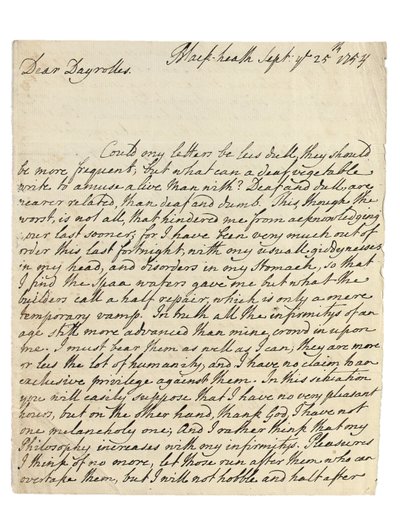 Black-heath Sept. ye 25th 1754
Dear Dayrolles.
Could my letters be less dull, they should
be more frequent, but what can a deaf vegetable
write to amuse a live man with? Deaf and dull, are
nearer related, than deaf and dumb. This, though the
worst, is not all, that hindered me from acknowledging
your last sooner; for I have been very much out of
order this last fortnight, with my usual giddynesses
in my head, and disorders in my stomach, so that
I find the Spaa waters gave me but what the
builders call a half repair, which is only a mere
temporary vamp. In truth all the infirmitys of an
age still more advanced than mine, crowd in upon
me. I must bear them as well as I can, they are more
or less the lot of humanity, and I have no claim to an
exclusive privilege against them. In this situation
you will easily suppose that I have no very pleasant
hours, but on the other hand, thank God, I have not
one melancholy one, And I rather think that my
Philosophy increases with my infirmitys. Pleasures
I think of no more, let those run after them who can
overtake them, but I will not hobble and halt after